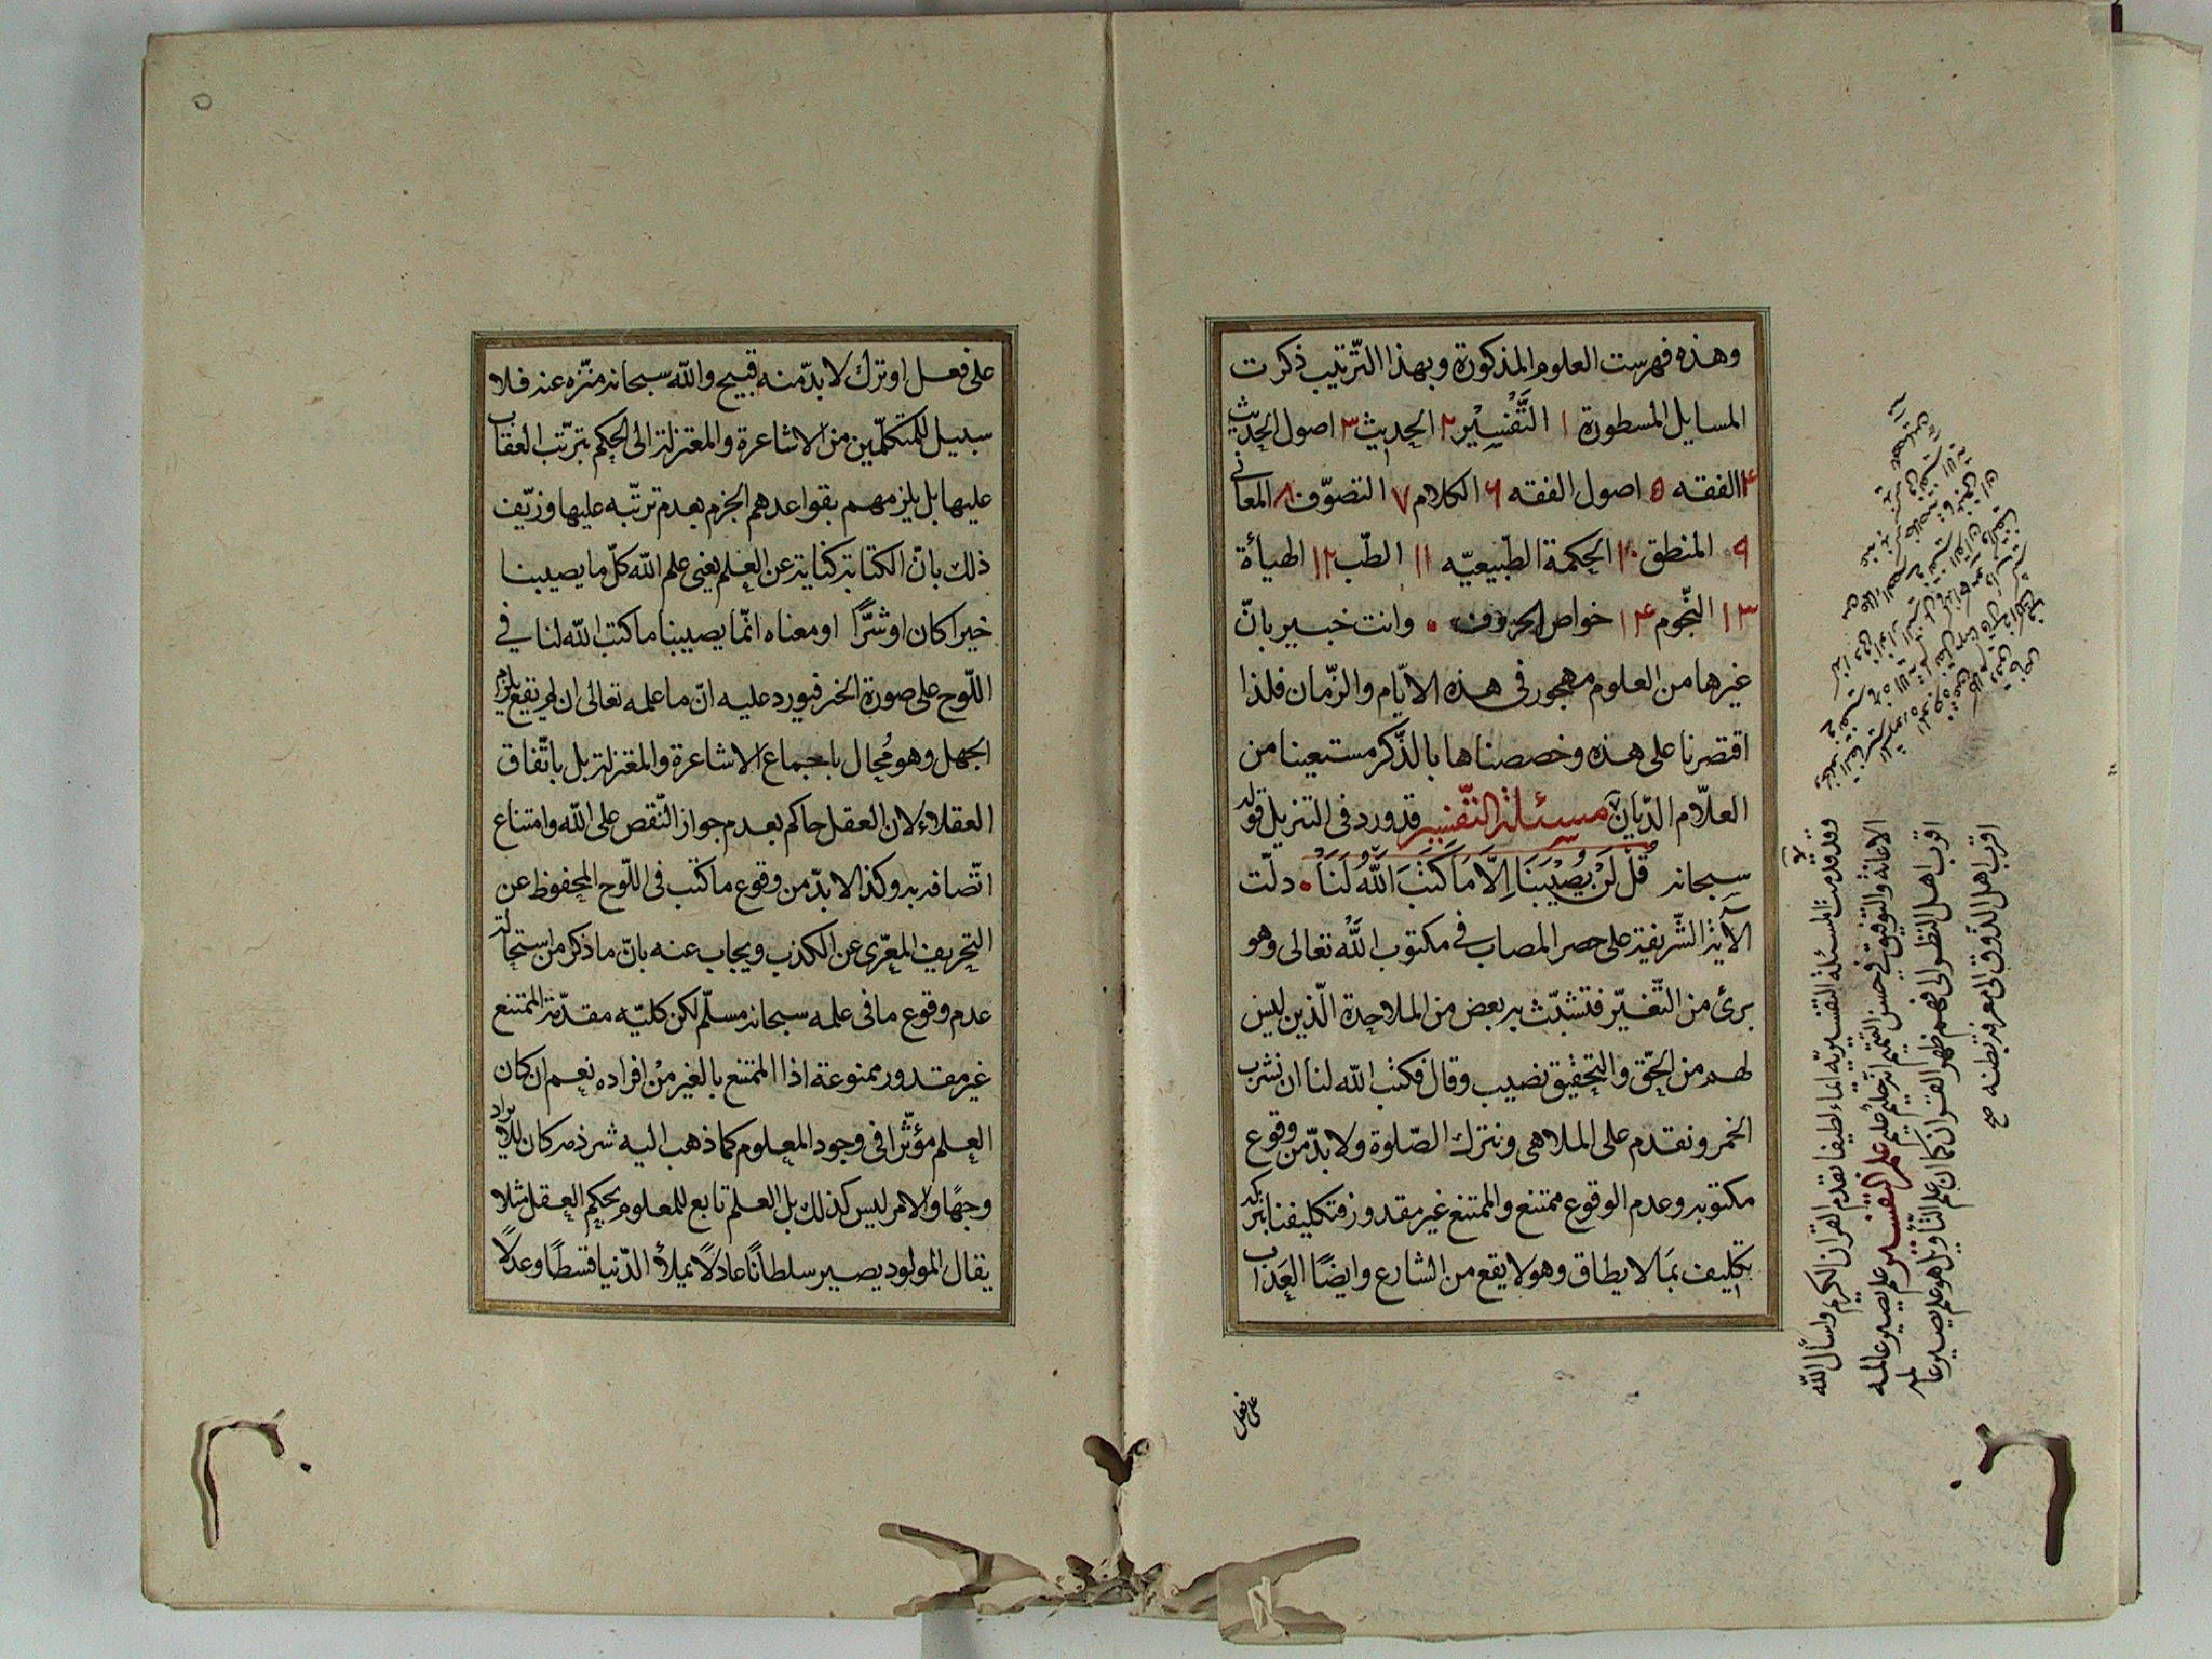 وهذه فهرست العلوم المذكورة وبهذا الترتيب ذكرت
المسايل المسطورة ١ التَّفْسِيْر ٢ الحديث ٣ اصول الحديث
۴ الفقه ۵ اصول الفقه ۶ الكلام ٧ التصوّف ٨ المعانى
٩ المنطق ١٠ الحكمة الطّبيعيّه ١١ الطّب ١٢ الهيأة
١٣ النّجوم ١۴ خواص الحروف وانت خبير بانّ
غيرها من العلوم مهجور فى هذه الايّام والزّمان فلذا
اقتصرنا على هذه وخصصناها بالذّكر مستعينا من
العلاّم الدّيان مسئلة التّفسير قد ورد فى التنزيل قوله
سبحانه قُلْ لَنْ يُصِيْبَنَا اِلاَّ مَا كَتَبَ اللّهُ لَنَا دلّت
الآية الشّريفة على حصر المصاب فى مكتوب اللّه تعالى وهو
برئ من التّغيّر فتشبّث به بعض من الملاحدة الّذين ليس
لهم من الحّق والتحقيق نصيب وقال فكتب اللّه لنا ان نشرب
الخمر ونقدم على الملاهى ونترك الصّلوة ولا بدّ من وقوع
مكتوبه وعدم الوقوع ممتنع والممتنع غير مقدور فتكليفنا بتركه
تكليف بمَا لا يطاق وهو لا يقع من الشارع وايضًا العَذاب
على فعل
وقد قدمت المسئلة التفسيريّة ايماء لطيفا تقدم القران الكريم واسأل اللّه
الاعانة والتوفيق فى حسن التتميم انه حليم عليم علم التفسير علم يصير عالمه
اقرب اهل النظر الى فهم ظهر القران كما ان علم التّأويل هو علم يصير عالمه
اقرب اهل الذّوق الى معرفة بطنه صح
على فعل او ترك لا بدّ منه قبيح واللّه سبحانه منزّه عنه فلا
سبيل للمتكلّمين من الاشاعرة والمعتزلة الى الحكم بترتّب العقاب
عليها بل يلزمهم بقواعدهم الجزم بعدم ترتّبه عليها وزيّف
ذلك بانّ الكتابة كناية عن العلم يعنى علم اللّه كلّ ما يصيبنا
خيرا كان او شرًّا او معناه انّما يصيبنا ما كتب اللّه لنا فى
اللّوح على صورة الخبر فيورد عليه انّ ما علمه تعالى ان لم يقع يلزم
الجهل وهو مُحال باجماع الاشاعرة والمعتزلة بل باتّفاق
العقلاء لان العقل حاكم بعدم جواز النّقص على اللّه وامتناع
اتّصافه به وكذا لا بدّ من وقوع ما كتب فى اللّوح المحفوظ عن
التحريف المعرّى عن الكذب ويجاب عنه بانّ ما ذكر من استحالة
عدم وقوع ما فى علمه سبحانه مسلّم لكن كليّه مقدّمة الممتنع
غير مقدور ممنوعة اذ الممتنع بالغير من افراده نعم ان كان
العلم مؤثّرا فى وجود المعلوم كما ذهب اليه شرذمه كان للايراد
وجهًا والامر ليس كذلك بل العلم تابع للمعلوم بحكم العقل مثلا
يقال المولود يصير سلطانًا عادلاً يملأ الدّنيا قسطًا وعدلاً